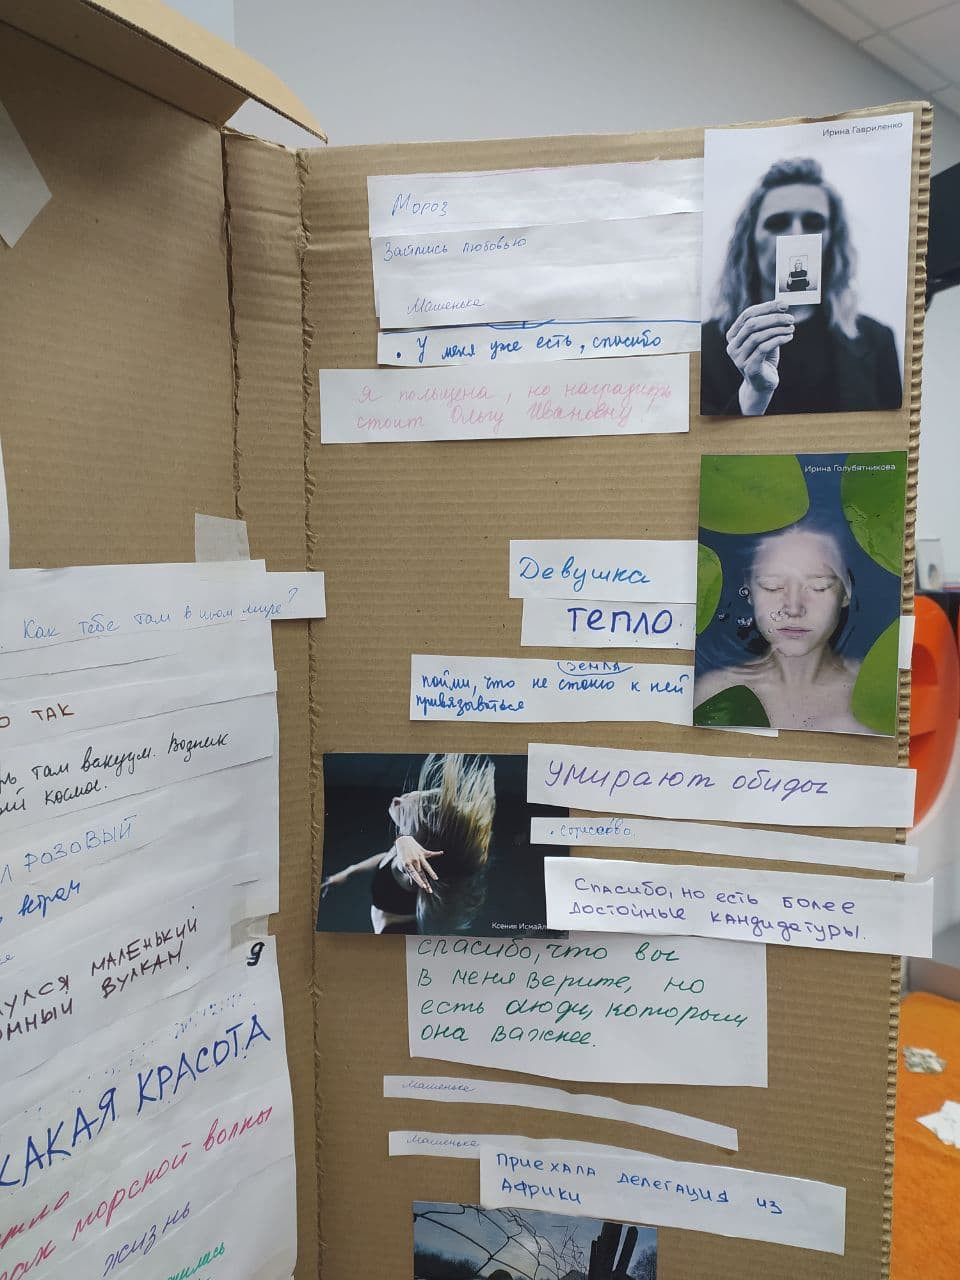 Ирина Гавриленко
Мороз
Займись любовью
Машенька
. У меня уже есть, спасибо
Я польщена, но наградить
стоит Ольгу Ивановну!
Ирина Голубятникова
Девушка
тепло
земля
пойми, что не стоит к ней
привязываться
Умирают обиды
Спасибо, но есть более
достойные кандидатуры.
Ксения Исмайл
спасибо, что вы
в меня верите, но
есть люди, которым
она важнее.
Машенька
Машенька
Приехала делегация из
Африки
Как тебе там в ином мире?
о так
там вакуум. Возник
космос.
розовый
маленький
вулкан.
я
КАКАЯ КРАСОТА
морской волны
жизнь